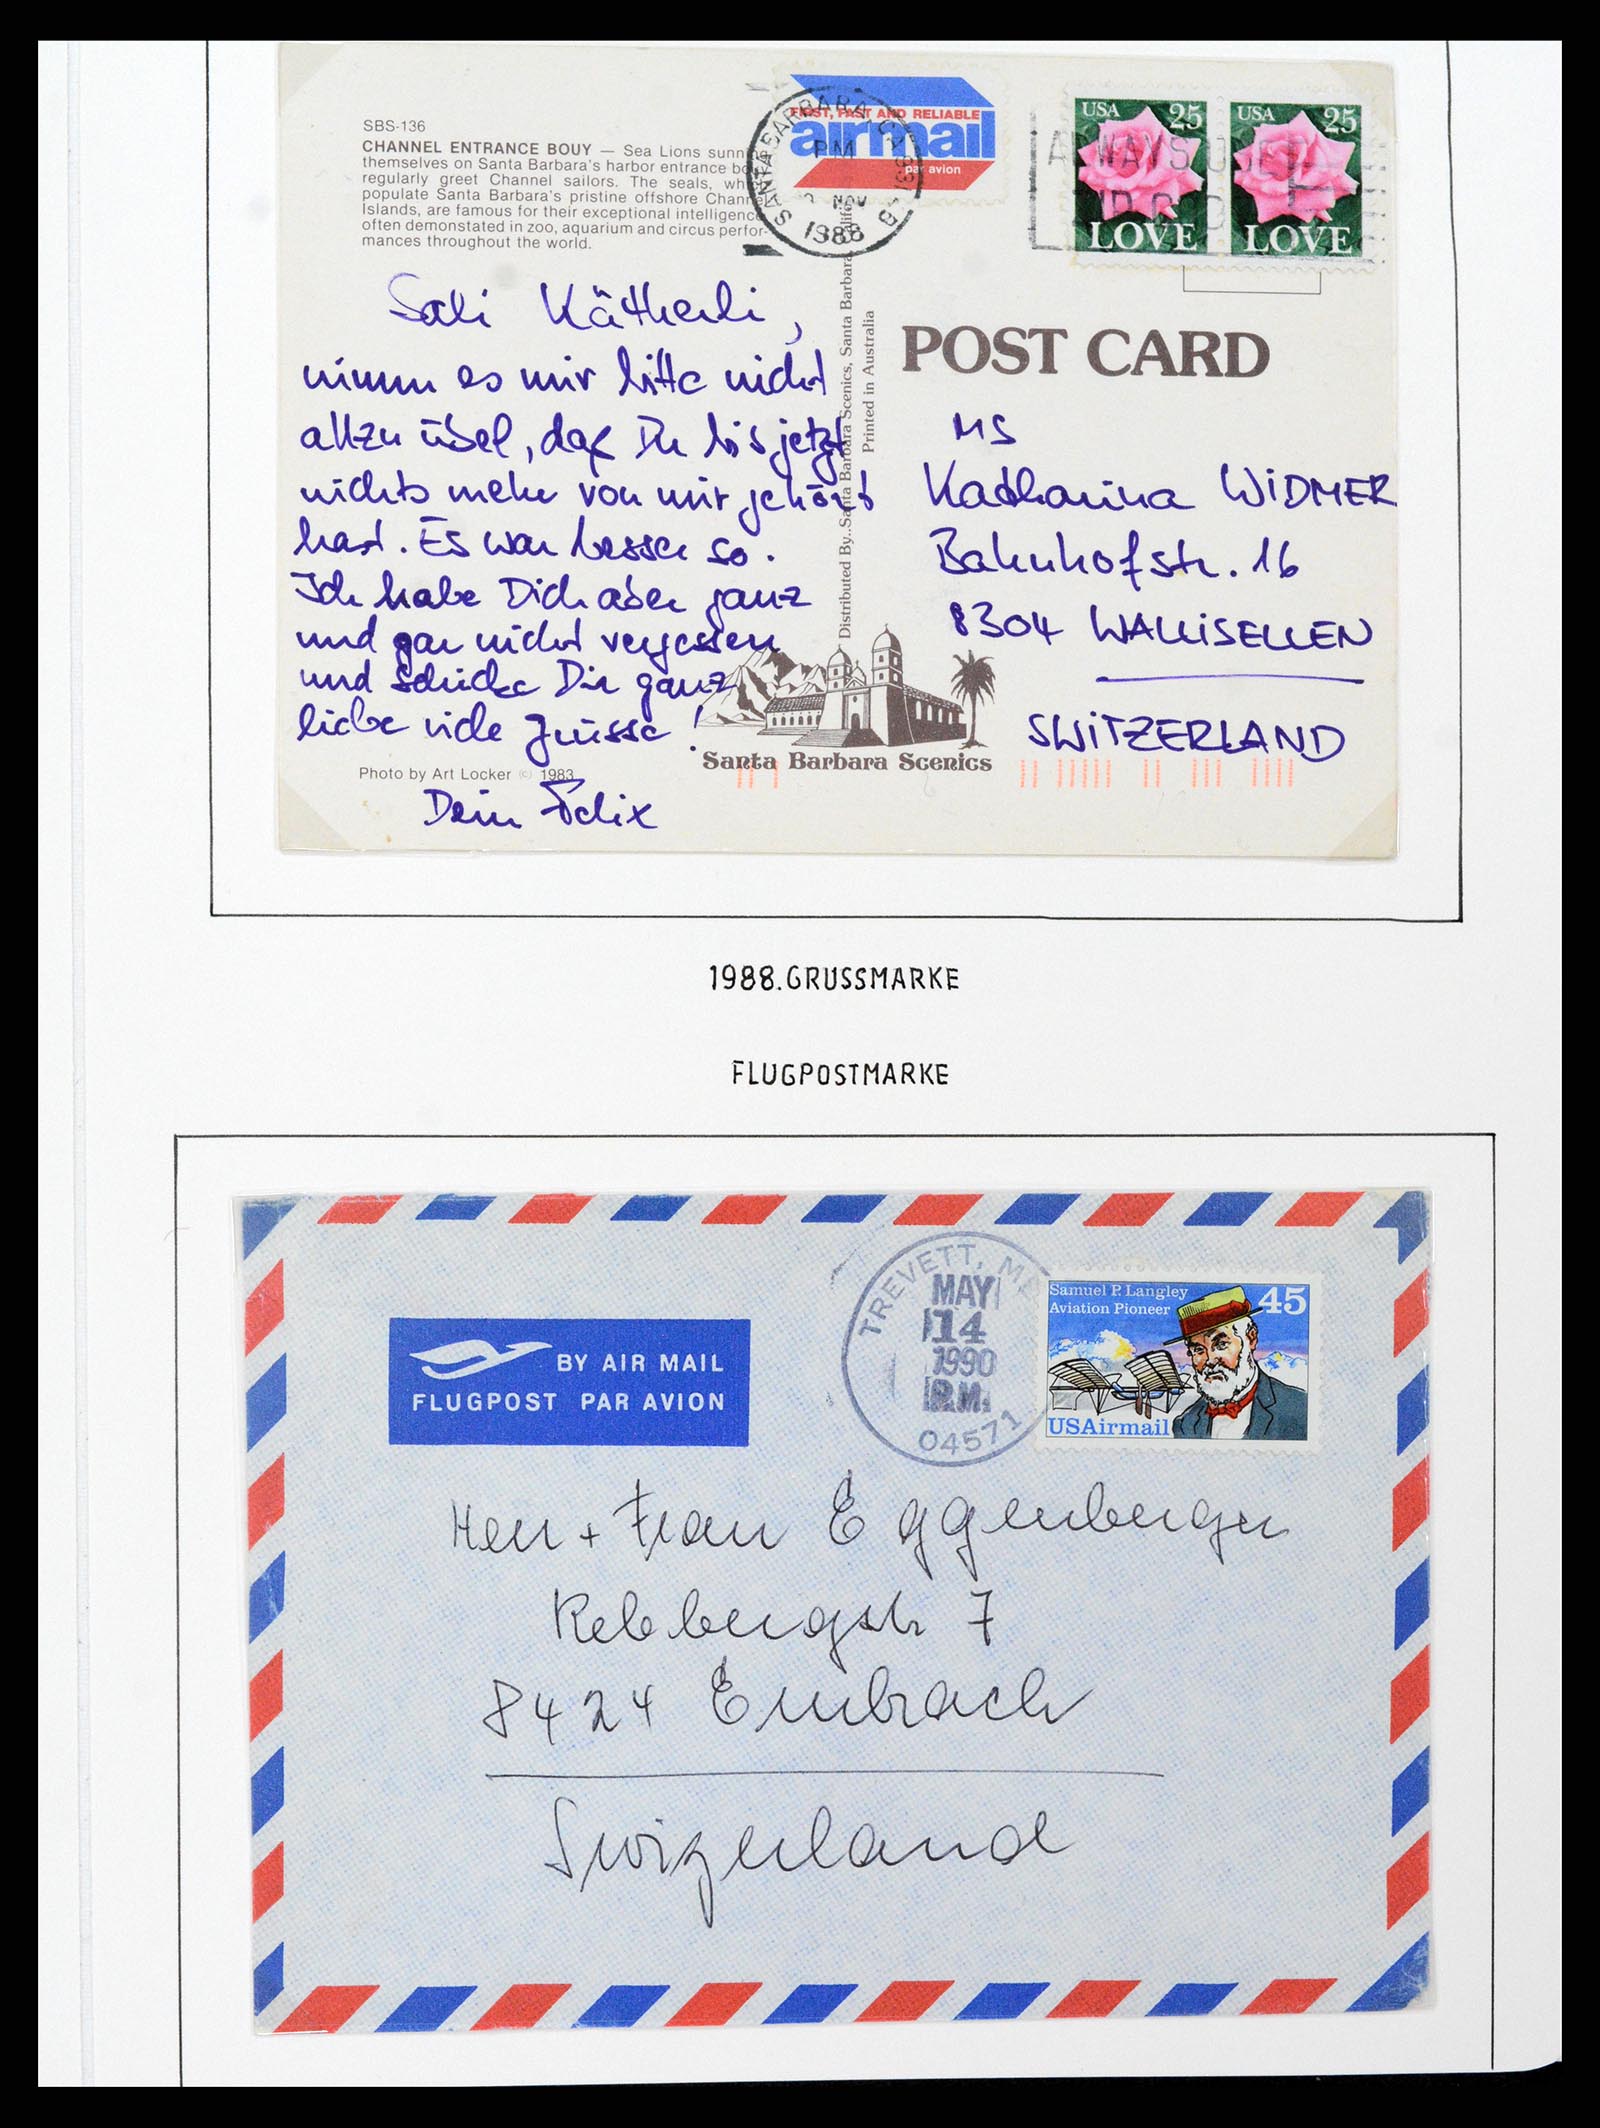 SBS-136
CHANNEL ENTRANCE BOUY — Sea Lions sunni
themselves on Santa Barbara's harbor entrance bo
regularly greet Channel sailors. The seals, whi
populate Santa Barbara's pristine offshore Channe
Islands, are famous for their exceptional intelligence
often demonstated in zoo, aquarium and circus perfor-
mances throughout the world.
FAST AND RELIABLE
airmail
par avion
SANTA BARBARA, CA 931
PM
NOV
1988
USA 25
LOVE
USA 25
LOVE
ALWAYS USE
ZIP CODE
Sali Kätherli,
nimm es mir bitte nicht
allzu übel, daß Du bis jetzt
nichts mehr von mir gehört
hast. Es war besser so.
Ich habe Dich aber ganz
und gar nicht vergessen
und schicke Dir ganz
liebe viele Grüsse!
Dein Felix
Photo by Art Locker © 1983
Distributed By..Santa Barbara Scenics, Santa Barbara, Santa Barbara,
Printed in Australia
POST CARD
MS
Katharina WIDMER
Bahnhofstr. 16
8304 WALLISELLEN
SWITZERLAND
Santa Barbara Scenics
1988.GRUSSMARKE
FLUGPOSTMARKE
BY AIR MAIL
FLUGPOST PAR AVION
TREVETT, ME
MAY
14
1990
P.M.
04571
Samuel P. Langley
Aviation Pioneer
45
USAirmail
Herr + Frau Eggenberger
Rebbergstr 7
8424 Embrach
Swizerland